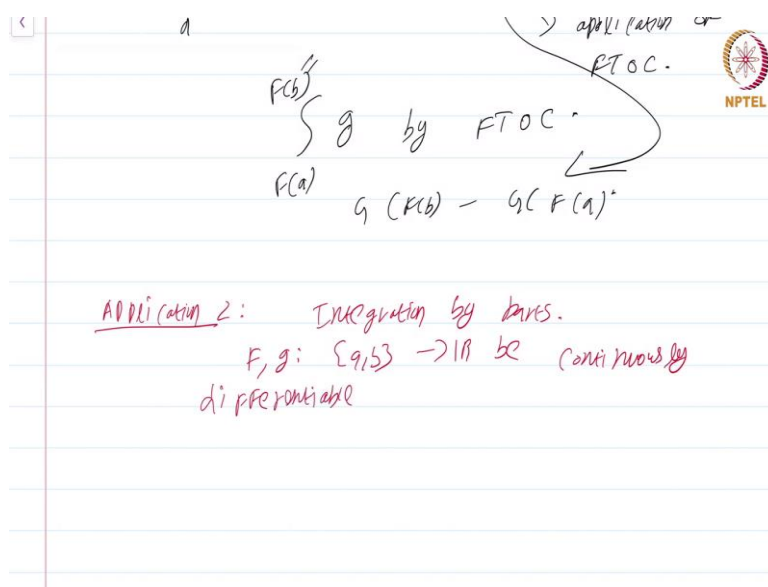 a
application of
FTOC.
NPTEL
F(b)
∫ g by FTOC.
F(a)
G (F(b) - G( F(a)
Application 2: Integration by parts.
F, g: [a,b] -> IR be continuously
differentiable